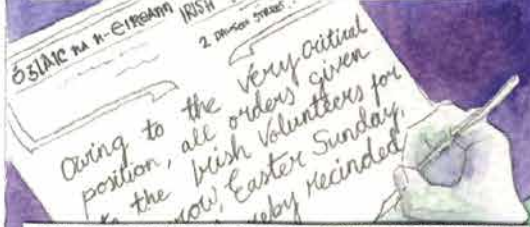 óglaıc na h-eıreann IRISH
2 DAWSON STREET
Owing to the very critical
position, all orders given
to the Irish Volunteers for
row, Easter Sunday,
reby recinded